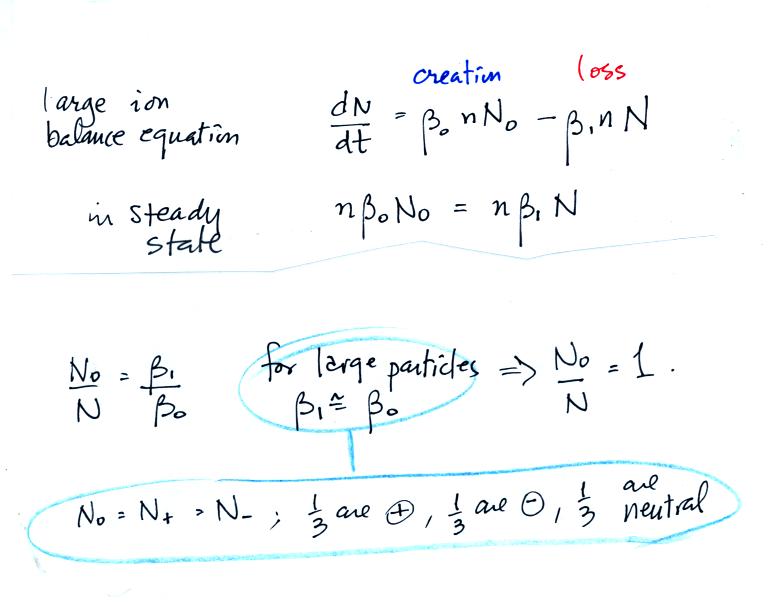 creation loss
large ion
balance equation
dN/dt = β₀ n N₀ - β₁ n N
in steady
state
n β₀ N₀ = n β₁ N
N₀/N = β₁/β₀
for large particles ⇒ N₀/N = 1.
β₁ ≅ β₀
N₀ = N₊ = N₋ ; 1/3 are ⊕, 1/3 are ⊖, 1/3 are
neutral